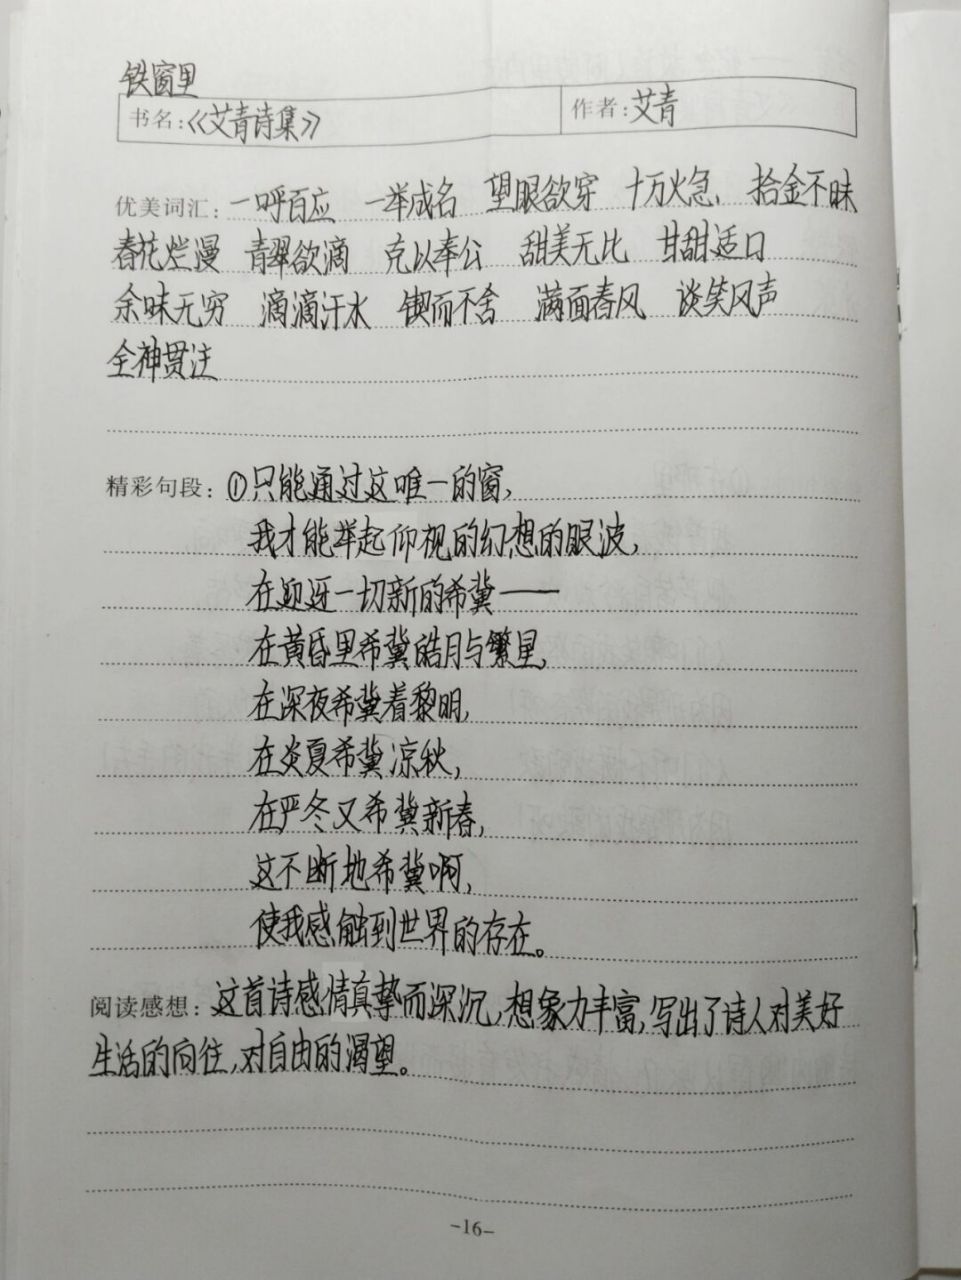 铁窗里
书名:《艾青诗集》 作者:艾青
优美词汇:一呼百应 一举成名 望眼欲穿 十万火急、 拾金不昧
春花烂漫 青翠欲滴 克以奉公 甜美无比 甘甜适口
余味无穷 滴滴汗水 锲而不舍 满面春风 谈笑风声
全神贯注
精彩句段:①只能通过这唯一的窗,
我才能举起仰视的幻想的眼波,
在迎迓一切新的希冀——
在黄昏里希冀皓月与繁星,
在深夜希冀着黎明,
在炎夏希冀凉秋,
在严冬又希冀新春,
这不断地希冀啊,
使我感触到世界的存在。
阅读感想:这首诗感情真挚而深沉,想象力丰富,写出了诗人对美好
生活的向往,对自由的渴望。
-16-